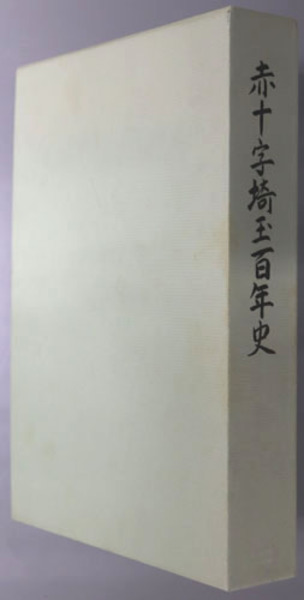 赤十字埼玉百年史